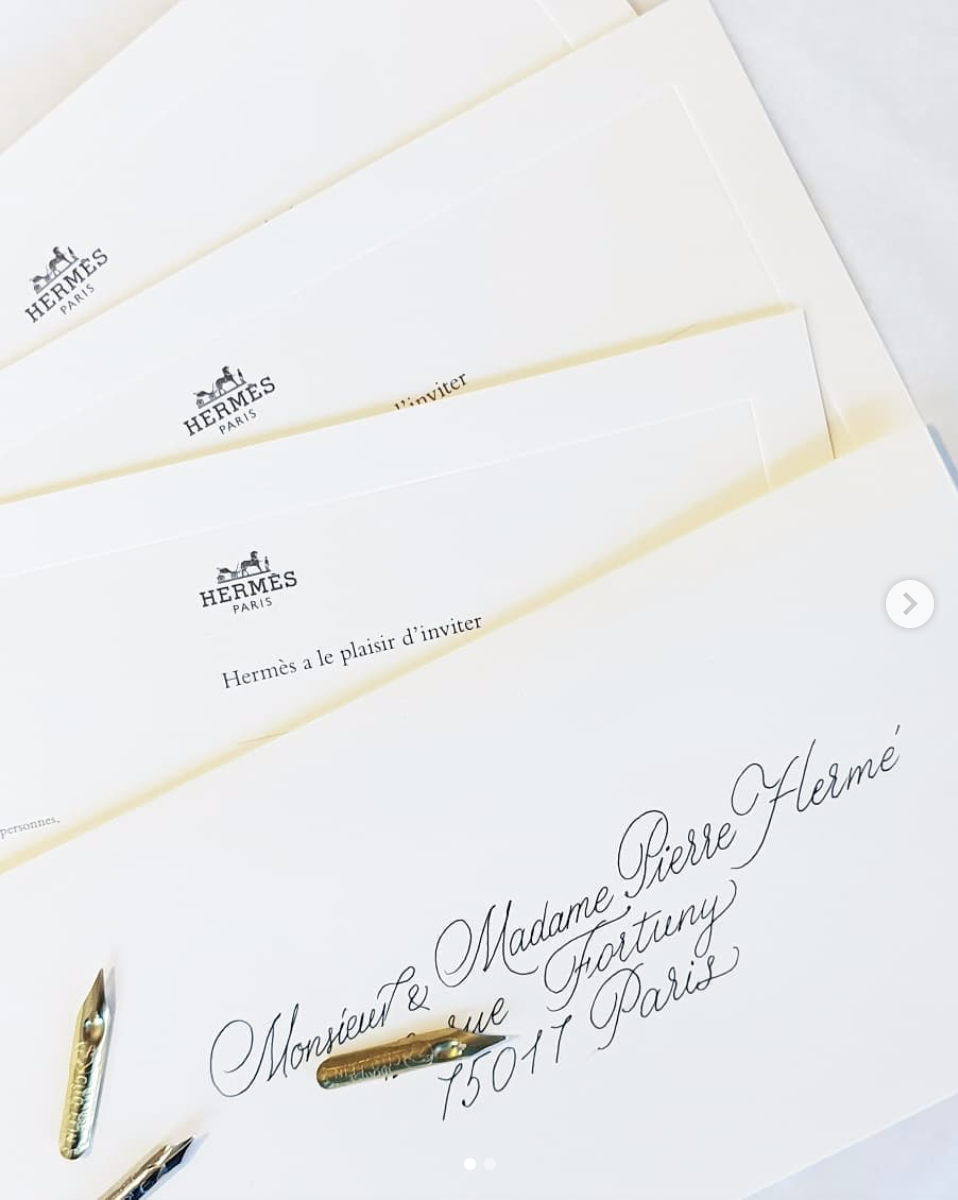 HERMÈS
PARIS
HERMÈS
PARIS
d'inviter
HERMÈS
PARIS
Hermès a le plaisir d'inviter
personnes,
Monsieur & Madame Pierre Hermé
rue Fortuny
75017 Paris